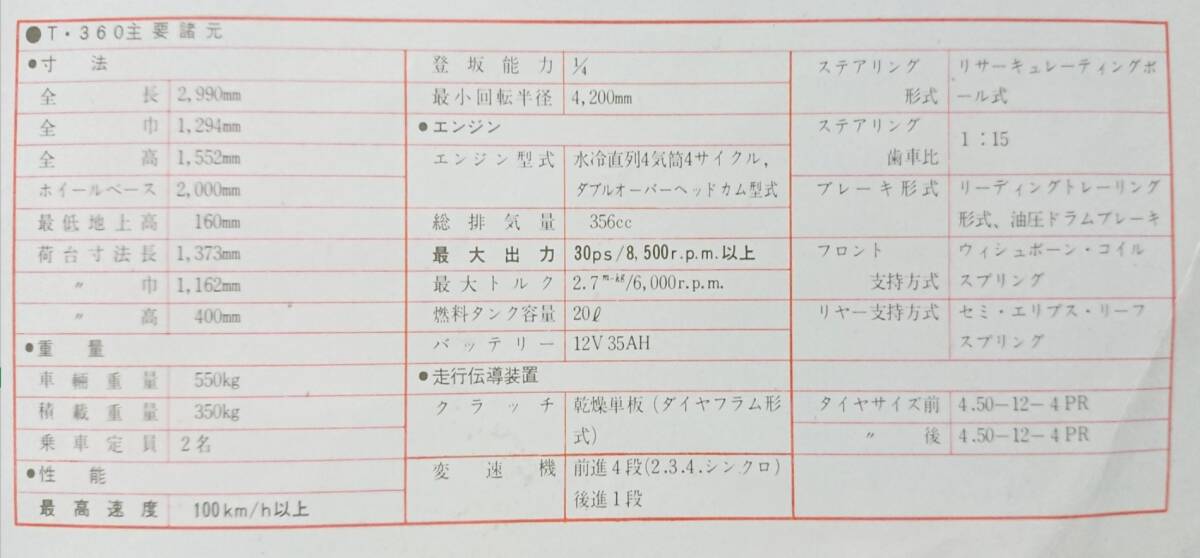 ●T・360主要諸元
●寸法
全長 2,990mm
全巾 1,294mm
全高 1,552mm
ホイールベース 2,000mm
最低地上高 160mm
荷台寸法長 1,373mm
〃 巾 1,162mm
〃 高 400mm
●重量
車輛重量 550kg
積載重量 350kg
乗車定員 2名
●性能
最高速度 100km/h以上
登坂能力 1/4
最小回転半径 4,200mm
●エンジン
エンジン型式 水冷直列4気筒4サイクル,
ダブルオーバーヘッドカム型式
総排気量 356cc
最大出力 30ps/8,500r.p.m.以上
最大トルク 2.7m-kg/6,000r.p.m.
燃料タンク容量 20ℓ
バッテリー 12V 35AH
●走行伝導装置
クラッチ 乾燥単板(ダイヤフラム形
式)
変速機 前進4段(2.3.4.シンクロ)
後進1段
ステアリング リサーキュレーティングボ
形式 ール式
ステアリング
歯車比 1:15
ブレーキ形式 リーディングトレーリング
形式、油圧ドラムブレーキ
フロント ウィシュボーン・コイル
支持方式 スプリング
リヤー支持方式 セミ・エリプス・リーフ
スプリング
タイヤサイズ前 4.50-12-4PR
〃 後 4.50-12-4PR